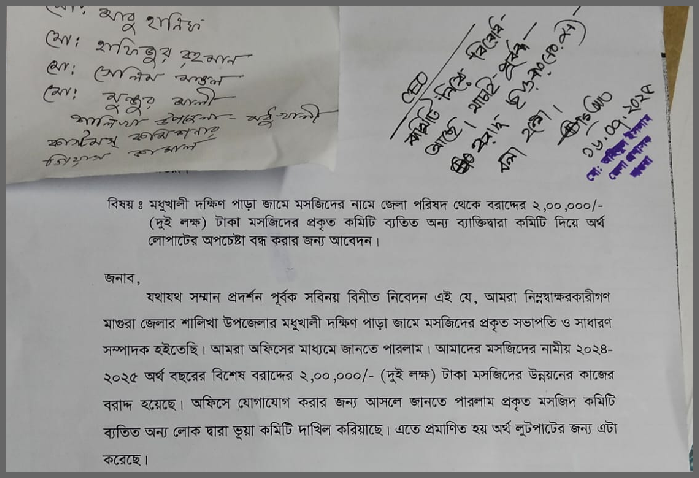 মো: আবু হানিফ
মো: হাফিজুর রহমান
মো: সেলিম মন্ডল
মো: মুঞ্জুর আলী
শালিখা উপজেলা- মধুখালী
কাস্টমস কমিশনার
কামাল
CEO
কমিটি নিয়ে বিরোধ
আছে। যাচাই পূর্বক
বরাদ্দ
বলা হলো।
১৬.০৭.২০২৫
জেলা প্রশাসক
মাগুরা
বিষয় ঃ মধুখালী দক্ষিণ পাড়া জামে মসজিদের নামে জেলা পরিষদ থেকে বরাদ্দের ২,০০,০০০/-
(দুই লক্ষ) টাকা মসজিদের প্রকৃত কমিটি ব্যতিত অন্য ব্যাক্তিদ্বারা কমিটি দিয়ে অর্থ
লোপাটের অপচেষ্টা বন্ধ করার জন্য আবেদন।
জনাব,
যথাযথ সম্মান প্রদর্শন পূর্বক সবিনয় বিনীত নিবেদন এই যে, আমরা নিম্নস্বাক্ষরকারীগণ
মাগুরা জেলার শালিখা উপজেলার মধুখালী দক্ষিণ পাড়া জামে মসজিদের প্রকৃত সভাপতি ও সাধারণ
সম্পাদক হইতেছি। আমরা অফিসের মাধ্যমে জানতে পারলাম। আমাদের মসজিদের নামীয় ২০২৪-
২০২৫ অর্থ বছরের বিশেষ বরাদ্দের ২,০০,০০০/- (দুই লক্ষ) টাকা মসজিদের উন্নয়নের কাজের
বরাদ্দ হয়েছে। অফিসে যোগাযোগ করার জন্য আসলে জানতে পারলাম প্রকৃত মসজিদ কমিটি
ব্যতিত অন্য লোক দ্বারা ভূয়া কমিটি দাখিল করিয়াছে। এতে প্রমাণিত হয় অর্থ লুটপাটের জন্য এটা
করেছে।